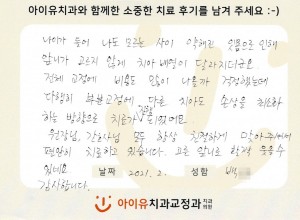 아이유치과와 함께한 소중한 치료 후기를 남겨 주세요 :-)
나이가 들어 나도 모르는 사이 약해진 잇몸으로 인해
앞니가 고르지 않게 치아 배열이 달라지더군요.
전체 교정에 비용도 많이 나올까 걱정했는데
다행히 부분교정에 다른 치아도 손상을 최소화
하는 방향으로 치료가 되었어요.
원장님, 간호사님 모두 항상 친절하게 대해주셔서
편안히 치료하고 있습니다. 고른 앞니로 활짝 웃을수
있네요.
감사합니다.
날짜 2021. 2. 성함 백
아이유치과교정과 치과의원